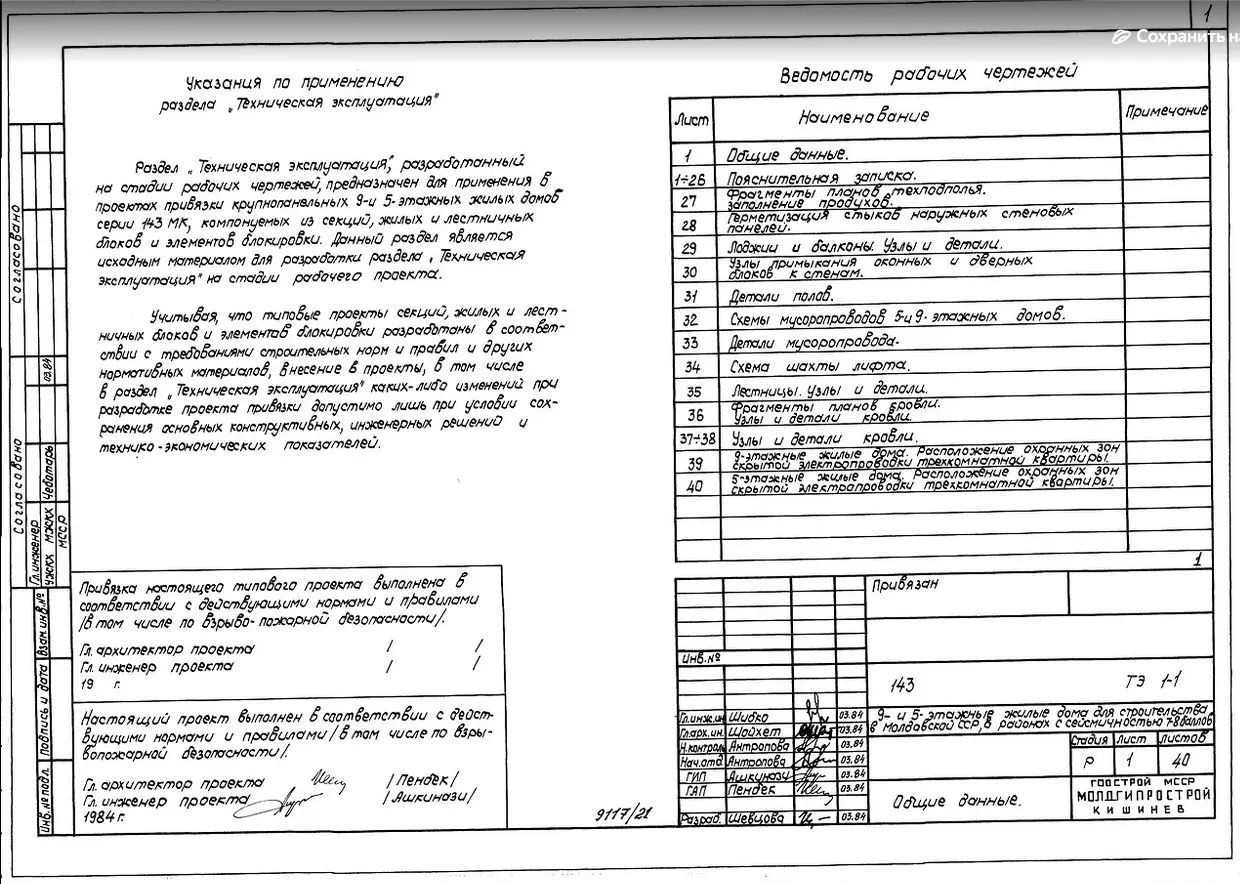 1
Сохранить на
Указания по применению
раздела „Техническая эксплуатация"
Раздел „Техническая эксплуатация", разработанный
на стадии рабочих чертежей, предназначен для применения в
проектах привязки крупнопанельных 9-и 5-этажных жилых домов
серии 143 МК, компонуемых из секций, жилых и лестничных
блоков и элементов блокировки. Данный раздел является
исходным материалом для разработки раздела „Техническая
эксплуатация" на стадии рабочего проекта.
Учитывая, что типовые проекты секций, жилых и лест-
ничных блоков и элементов блокировки разработаны в соответ-
ствии с требованиями строительных норм и правил и других
нормативных материалов, внесение в проекты, в том числе
в раздел „Техническая эксплуатация" каких-либо изменений при
разработке проекта привязки допустимо лишь при условии сох-
ранения основных конструктивных, инженерных решений и
технико-экономических показателей.
Привязка настоящего типового проекта выполнена в
соответствии с действующими нормами и правилами
/в том числе по взрыво-пожарной безопасности/.
Гл. архитектор проекта / /
Гл. инженер проекта / /
19 г.
Настоящий проект выполнен в соответствии с дейст-
вующими нормами и правилами /в том числе по взры-
вопожарной безопасности/.
Гл. архитектор проекта /Пендек/
Гл. инженер проекта /Ашкинази/
1984 г.
9117/21
Согласовано
Согласовано
Гл. инженер
УЖКХ МЖКХ
МССР
Чеботарь
03.84
Взам. инв. №
Подпись и дата
Инв. № подл.
Ведомость рабочих чертежей
Лист Наименование Примечание
1 Общие данные.
1÷26 Пояснительная записка.
27 Фрагменты планов техподполья.
заполнение продухов.
28 Герметизация стыков наружных стеновых
панелей.
29 Лоджии и балконы. Узлы и детали.
30 Узлы примыкания оконных и дверных
блоков к стенам.
31 Детали полов.
32 Схемы мусоропроводов 5-и 9-этажных домов.
33 Детали мусоропровода.
34 Схема шахты лифта.
35 Лестницы. Узлы и детали.
36 Фрагменты планов кровли.
Узлы и детали кровли.
37÷38 Узлы и детали кровли.
39 9-этажные жилые дома. Расположение охранных зон
скрытой электропроводки трехкомнатной квартиры.
40 5-этажные жилые дома. Расположение охранных зон
скрытой электропроводки трехкомнатной квартиры.
1
Привязан
Инв. №
143 ТЭ 1-1
Гл.инж.ин Шибко 03.84
Гл.арх.ин. Шойхет 03.84
Н.контроль Антропова 03.84
Нач.отд Антропова 03.84
ГИП Ашкинази 03.84
ГАП Пендек 03.84
Разраб. Шевцова 03.84
9- и 5-этажные жилые дома для строительства
в Молдавской ССР, в районах с сейсмичностью 7-8 баллов
Стадия Лист Листов
Р 1 40
Общие данные.
ГОССТРОЙ МССР
МОЛДГИПРОСТРОЙ
КИШИНЕВ